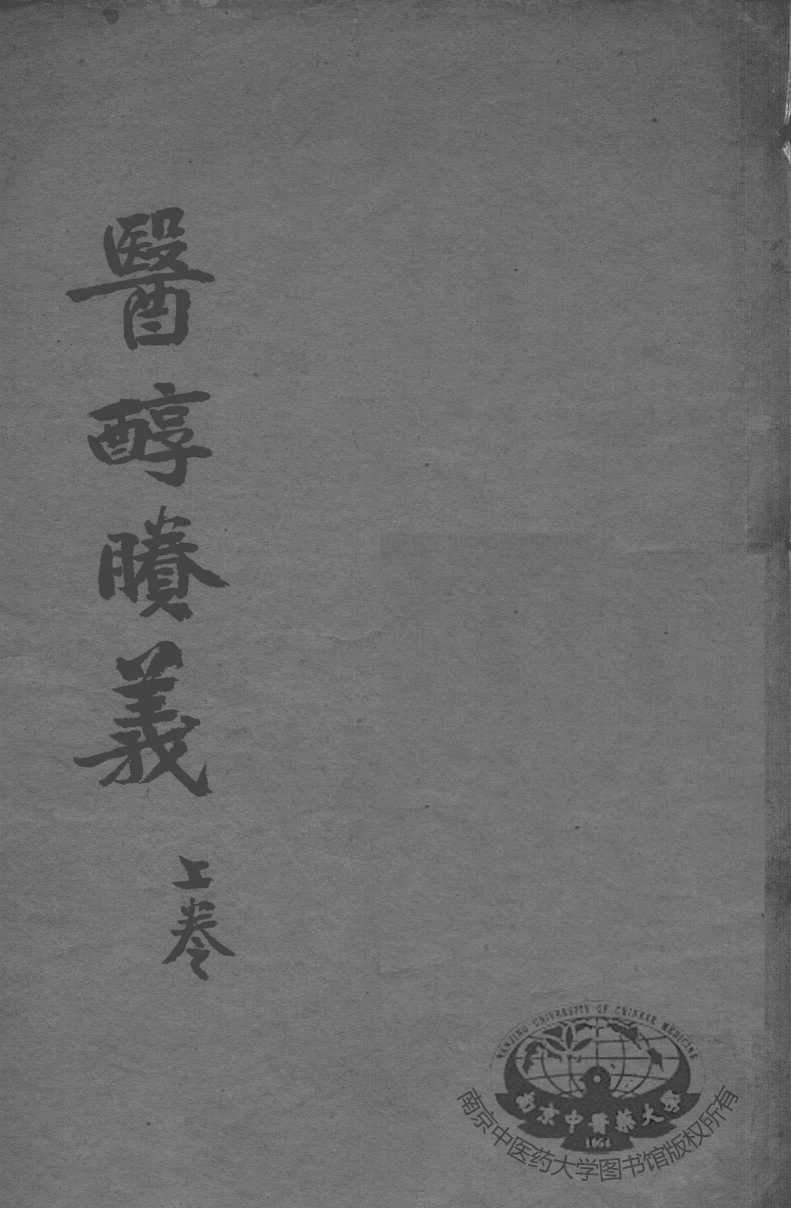 醫醇賸義
上卷
NANJING UNIVERSITY OF CHINESE MEDICINE
南京中醫藥大學
1954
南京中医药大学图书馆版权所有